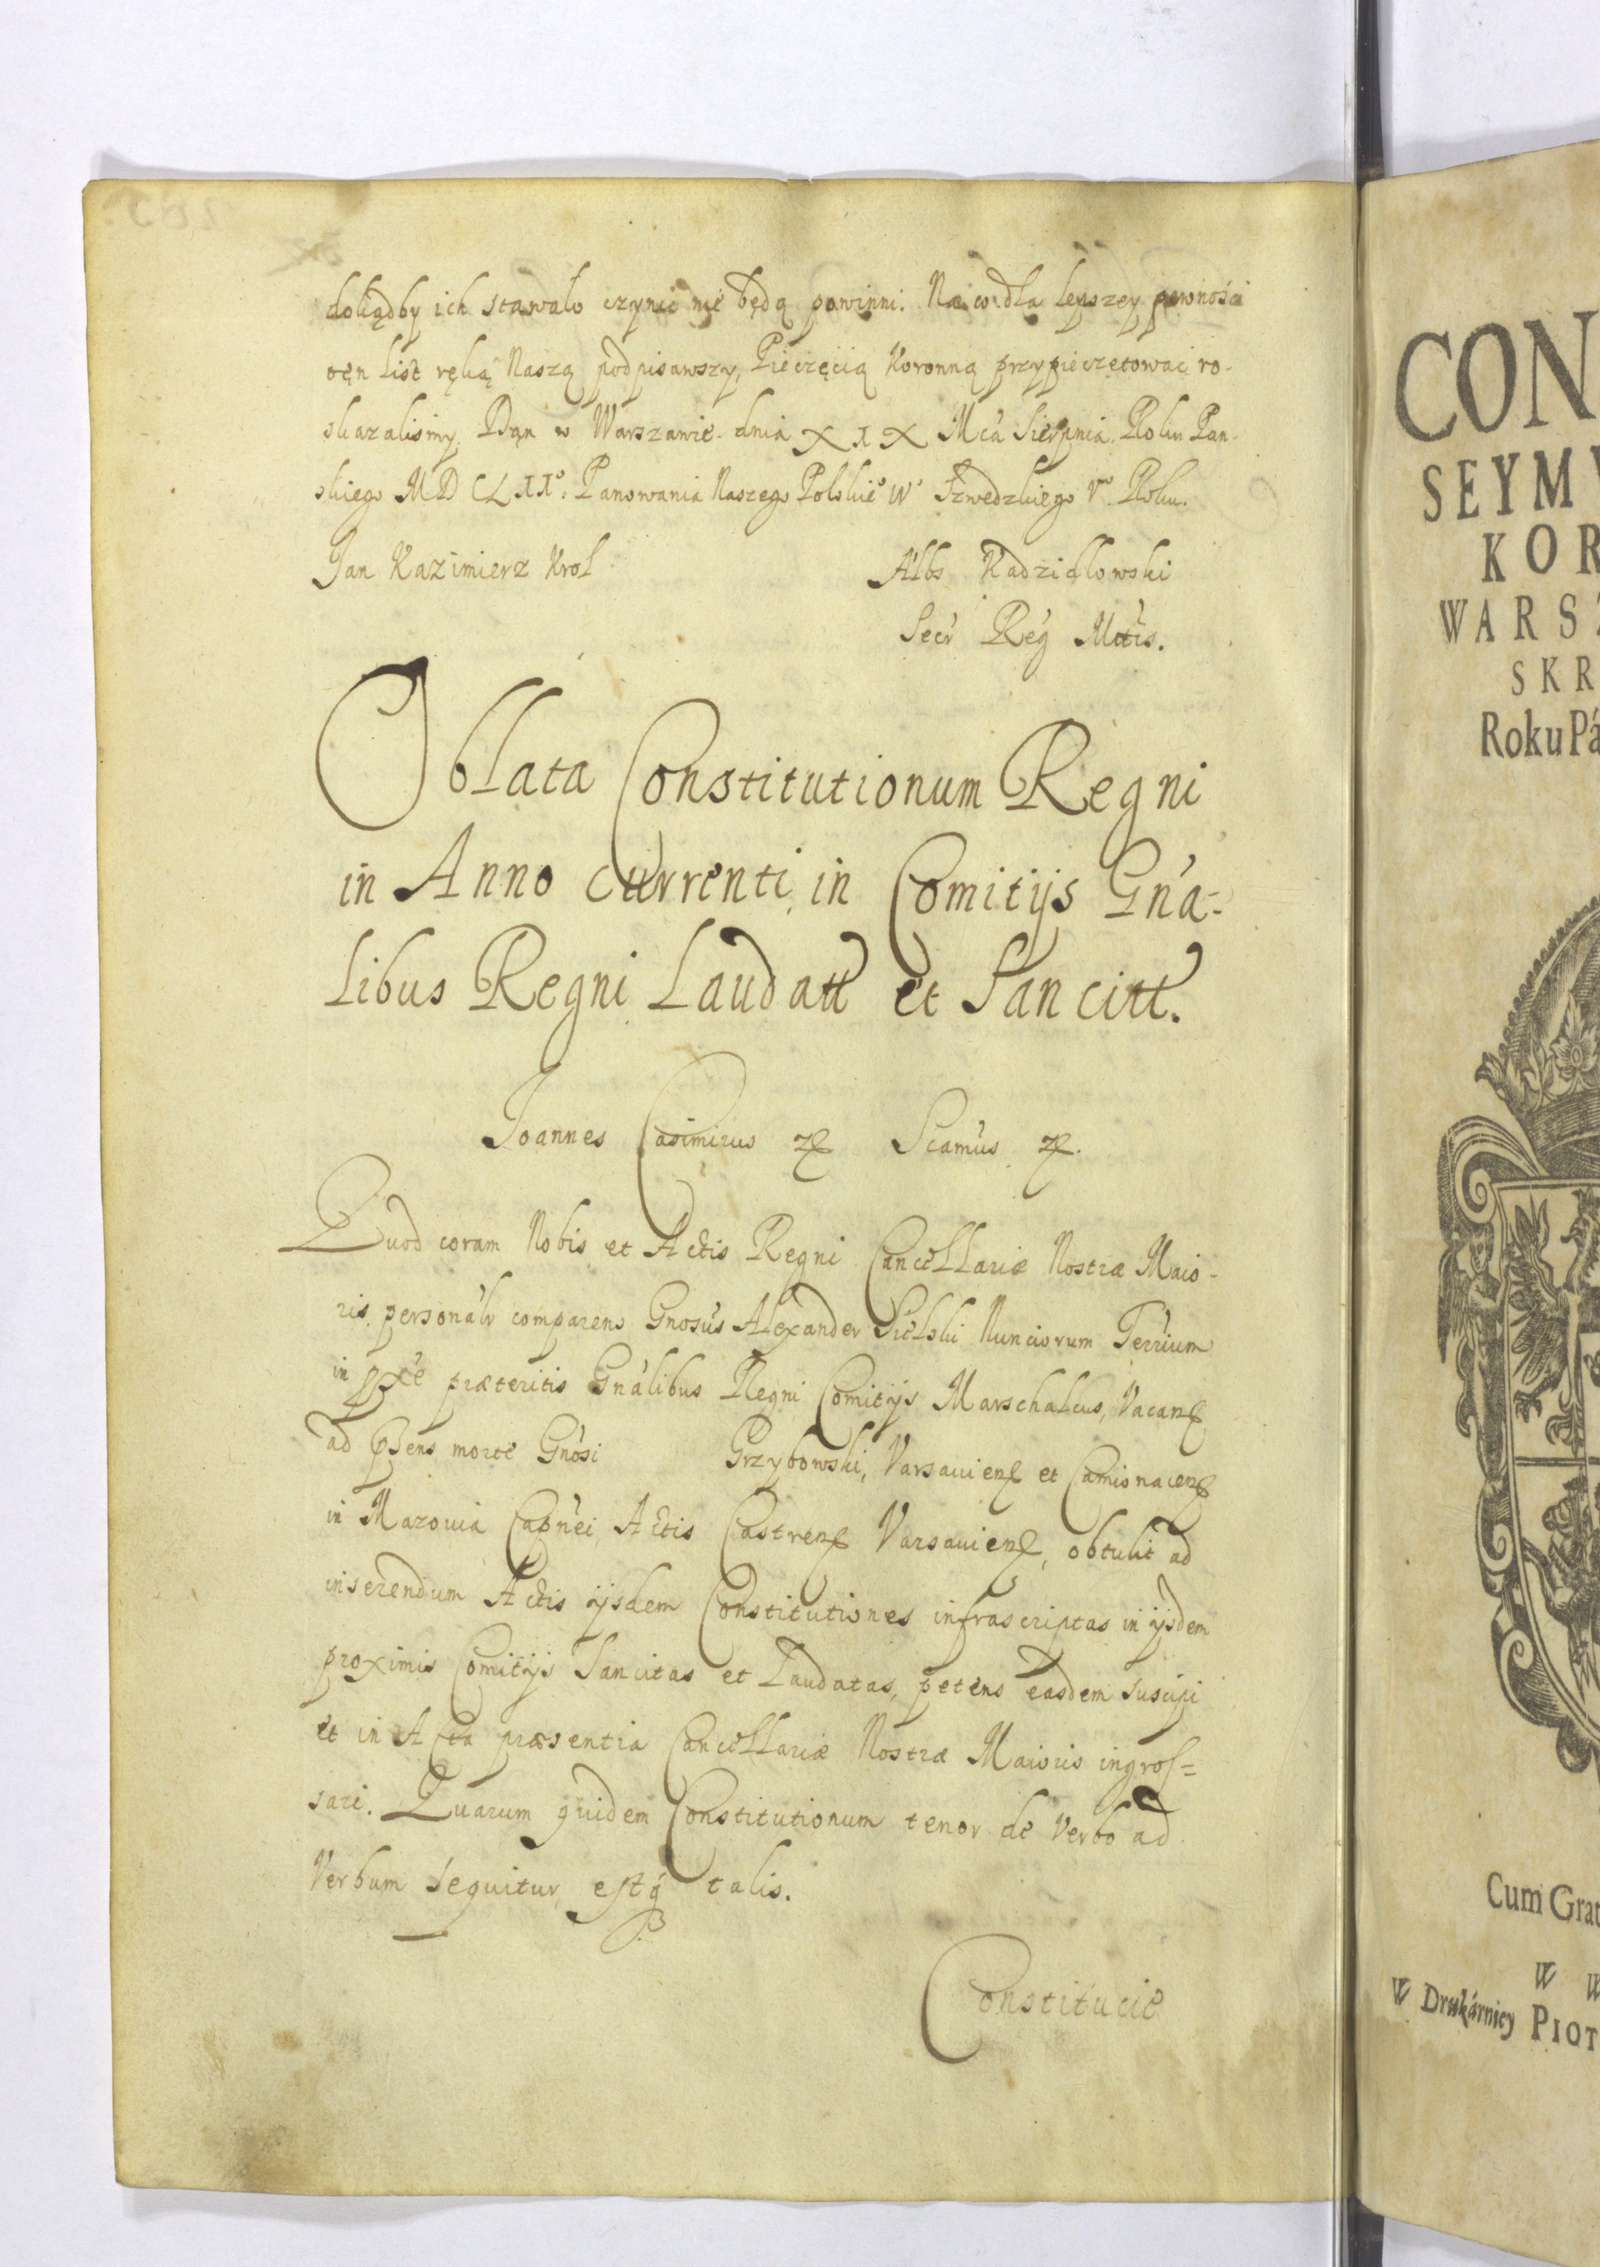 dokądby ich stawało czynić nie będą powinni. Na co dla lepszey pewnośći
ten list ręką Naszą podpisawszy, Pieczęcią Koronną przypieczętować ro-
skazalismy. Dan w Warszawie dnia XIX Mca Sierpnia Roku Pan-
skiego MDCLII°. Panowania Naszego Polskie° IV° Szwedzkiego V° Roku.
Jan Kazimierz Krol
Albs Kadzidlowski
Secr Reg Mttis.
Oblata Constitutionum Regni
in Anno currenti in Comitijs Gna-
libus Regni Laudatt et Sancitt.
Joannes Casimirus Scamus
Quod coram Nobis et Actis Regni Cancellariæ Nostræ Maio-
ris personalr comparens Gnosus Alexander Sielski Nunciorum Terrium
in præteritis Gnalibus Regni Comitijs Marschalcus, Vacan
ad morte Gnosi Grzybowski, Varsavien et Camionacen
in Mazovia Capnei Actis Castren Varsavien, obtulit ad
inserendum Actis ijsdem Constitutiones infrascriptas in ijsdem
proximis Comitijs Sancitas et Laudatas, petens easdem suscipi
et in Acta præsentia Cancellariæ Nostræ Maioris ingros=
sari. Quarum quidem Constitutionum tenor de Verbo ad
Verbum sequitur estq talis.
Constitucie
CON
SEYM
KOR
WARS
SKR
Roku Pá
Cum Grat
W W
W Drukárnicy PIOT